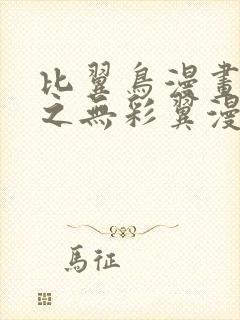 比翼鳥漫畫
之無彩翼漫
馬征